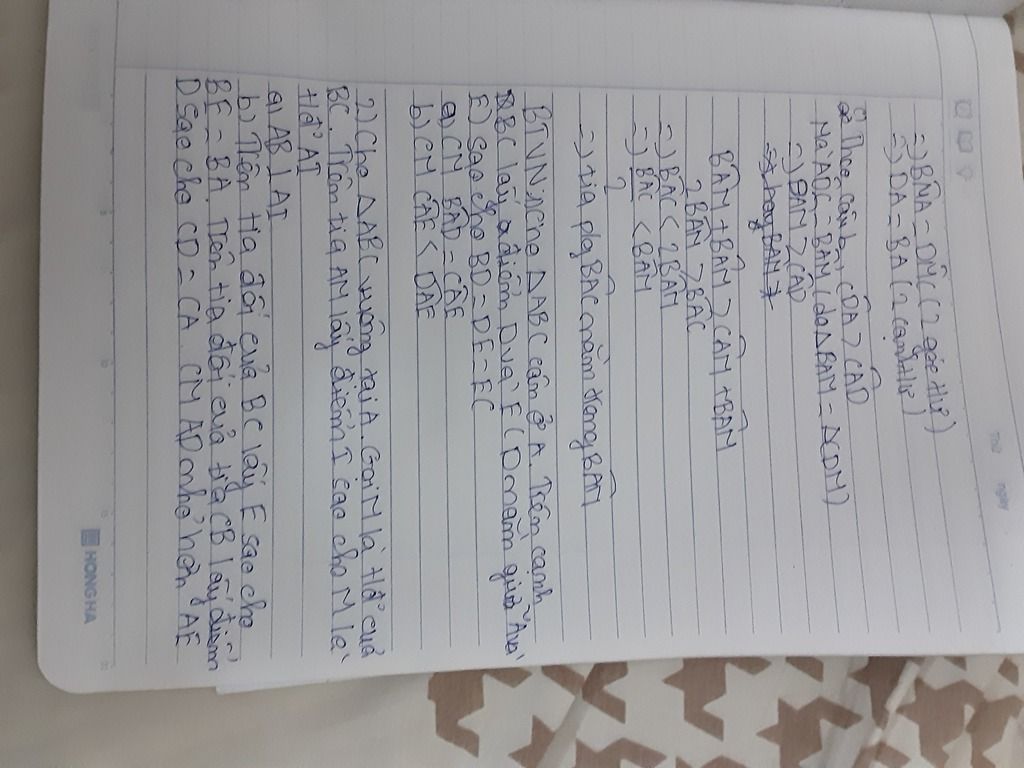 Thứ
Ngày
=) BNA = DMC (2 góc t/ứ)
=) DA = BA (2 cạnh t/ứ)
Theo câu b, CDA > CAD
Mà ADC = BAM (do ΔBAM = ΔCDM)
=) BAM > CAD
BAM + BAM > CAM + BAM
2BAM > BAC
=) BAC < 2BAM
=) BAC/2 < BAM
=) tia pg BAC nằm trong BAM
BTVN: 1) Cho ΔABC cân ở A. Trên cạnh
BC lấy 2 điểm D và E (D nằm giữa B và
E) sao cho BD = DE = EC
a) CM BAD = CAE
b) CM CAE < DAE
2) Cho ΔABC vuông tại A. Gọi M là t/đ của
BC. Trên tia AM lấy điểm I sao cho M là
t/đ AI
a) AB ⊥ AI
b) Trên tia đối của BC lấy E sao cho
BE = BA. Trên tia đối của tia CB lấy điểm
D sao cho CD = CA. CM AD nhỏ hơn AE
HONG HA